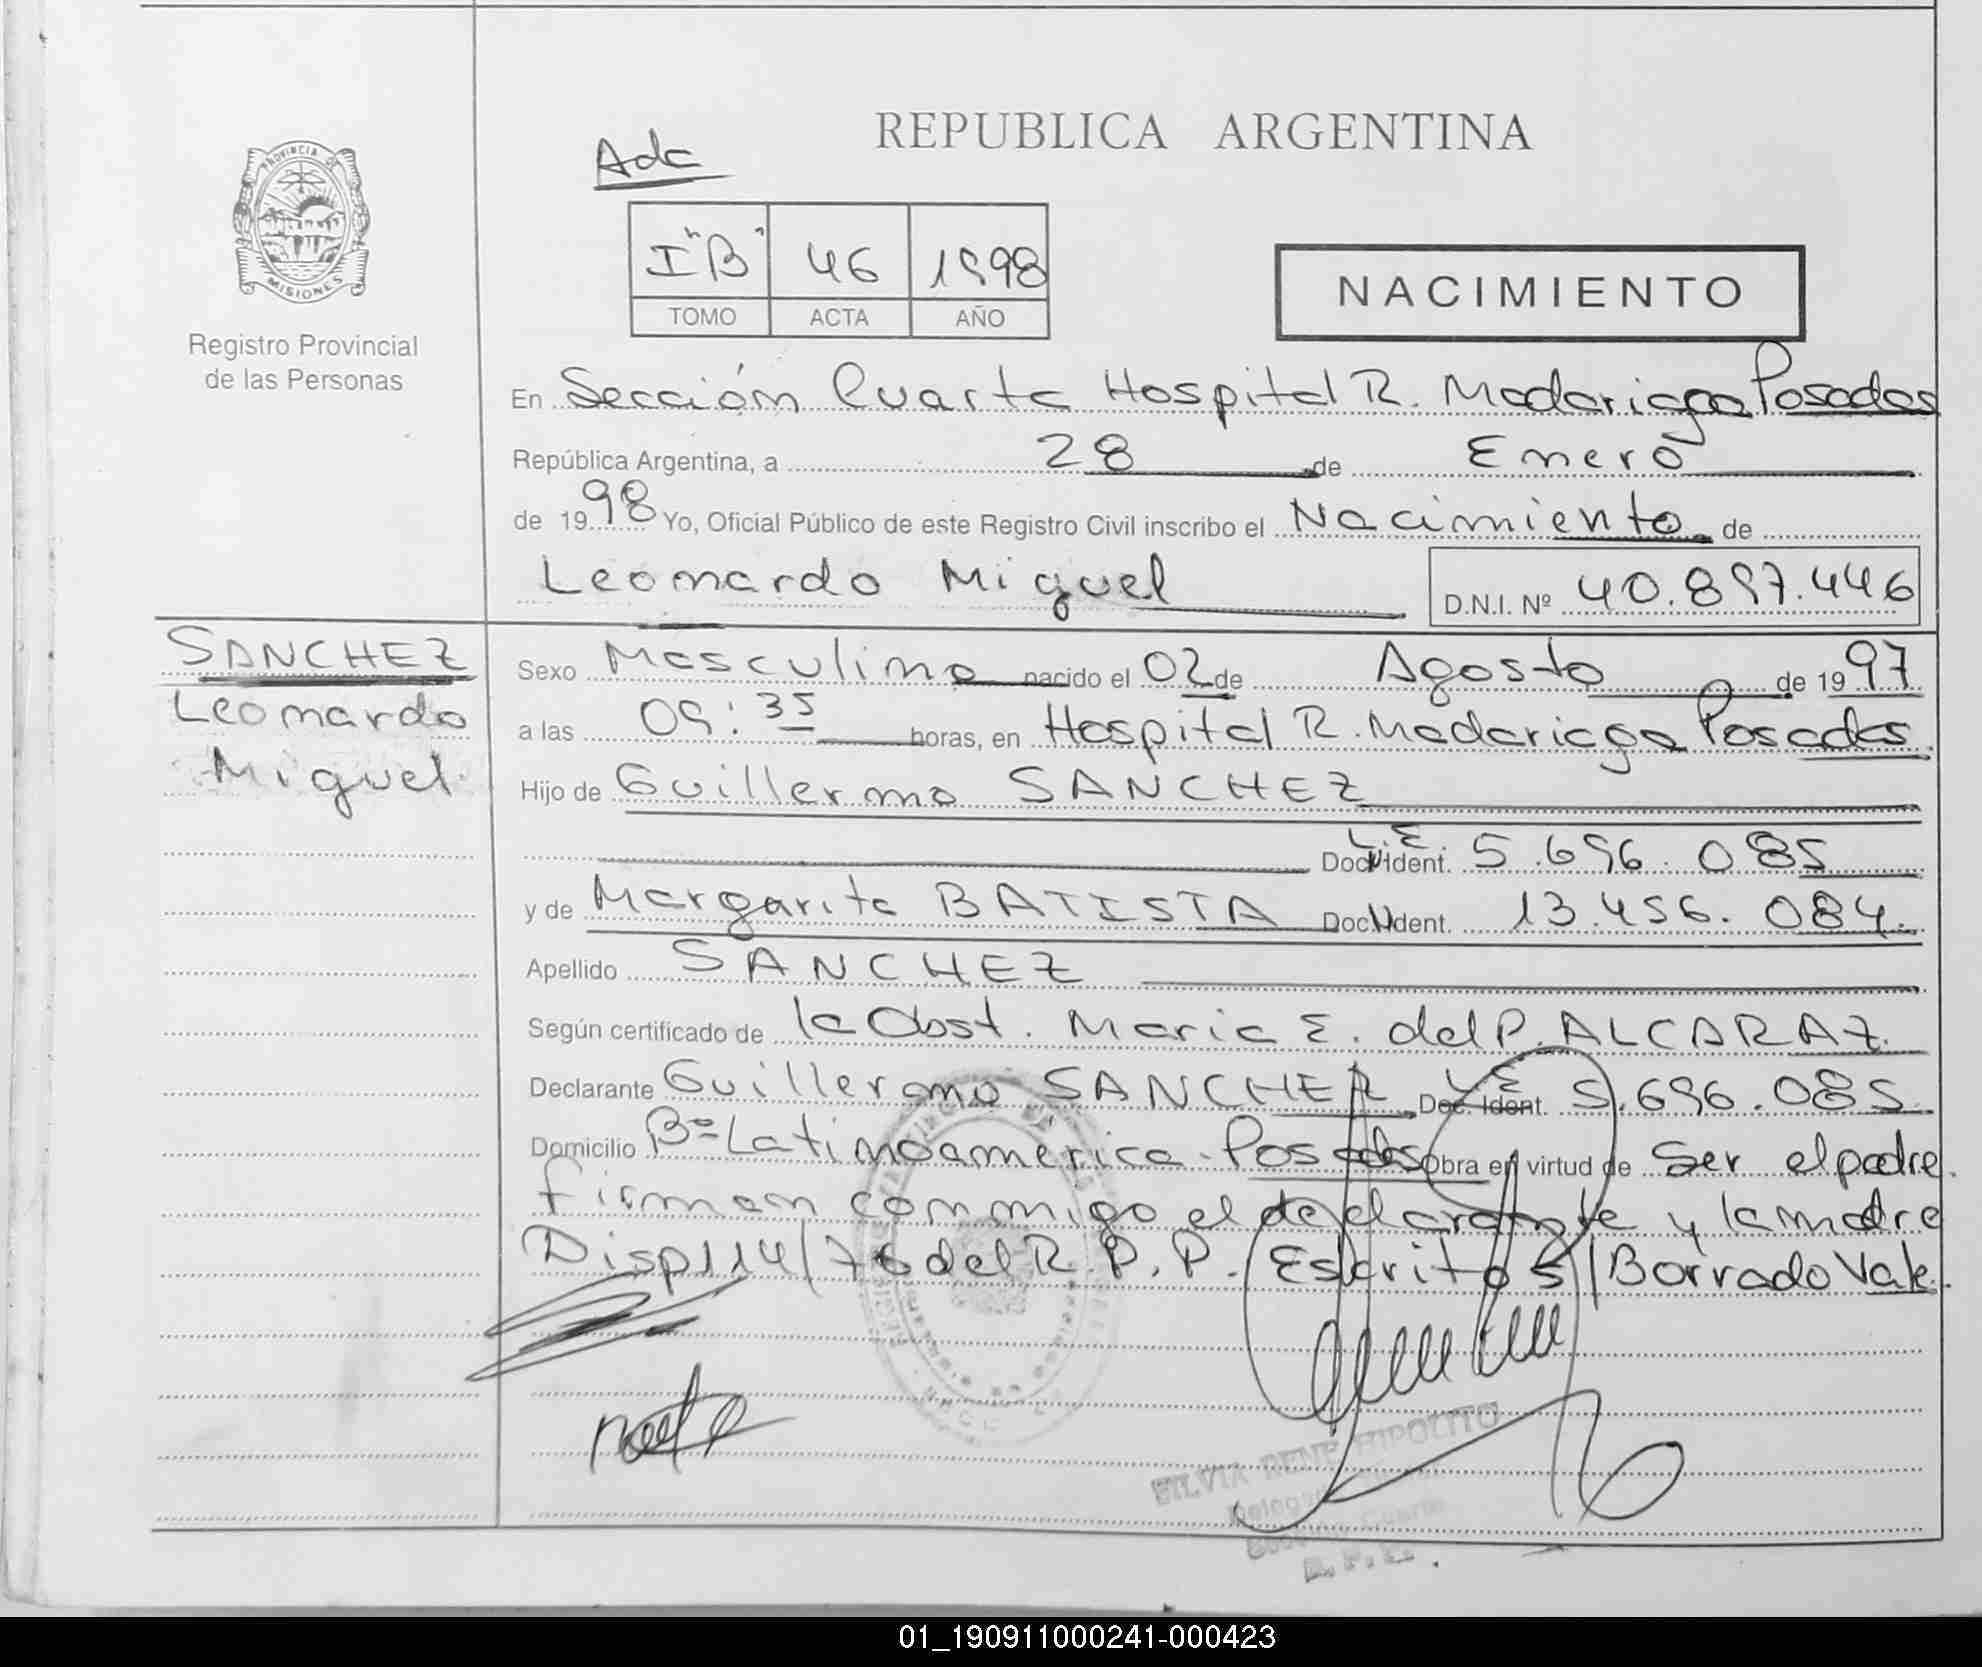 PROVINCIA DE
MISIONES
Registro Provincial
de las Personas
REPUBLICA ARGENTINA
Adc
I "B" 46 1998
TOMO ACTA AÑO
NACIMIENTO
En Sección Cuarta Hospital R. Madariaga Posadas
República Argentina, a 28 de Enero
de 1998 Yo, Oficial Público de este Registro Civil inscribo el Nacimiento de
Leonardo Miguel D.N.I. Nº 40.897.446
SANCHEZ
Leonardo
Miguel
Sexo Masculino nacido el 02 de Agosto de 1997
a las 09:35 horas, en Hospital R. Madariaga Posadas
Hijo de Guillermo SANCHEZ
L.E. Doc. Ident. 5.696.085
y de Margarita BATISTA Doc. Ident. 13.456.084.
Apellido SANCHEZ
Según certificado de la Obst. Maria E. del P. ALCARAZ
Declarante Guillermo SANCHEZ LE Doc. Ident. 5.696.085
Domicilio Bº Latinoamérica Posadas Obra en virtud de Ser el padre
firman conmigo el declarante y la madre
Disp 114/76 del R.P.P. Escritos/Borrado Vale.
SILVIA RENE HIPOLITO
01_190911000241-000423